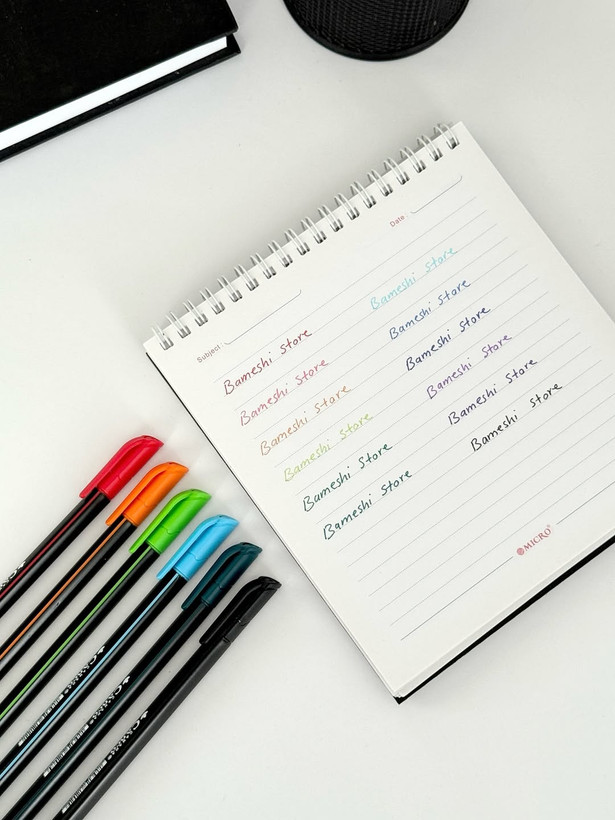 Date :
Subject :
Bameshi Store
Bameshi Store
Bameshi Store
Bameshi Store
Bameshi Store
Bameshi Store
Bameshi Store
Bameshi Store
Bameshi Store
Bameshi Store
Bameshi Store
Bameshi Store
MICRO